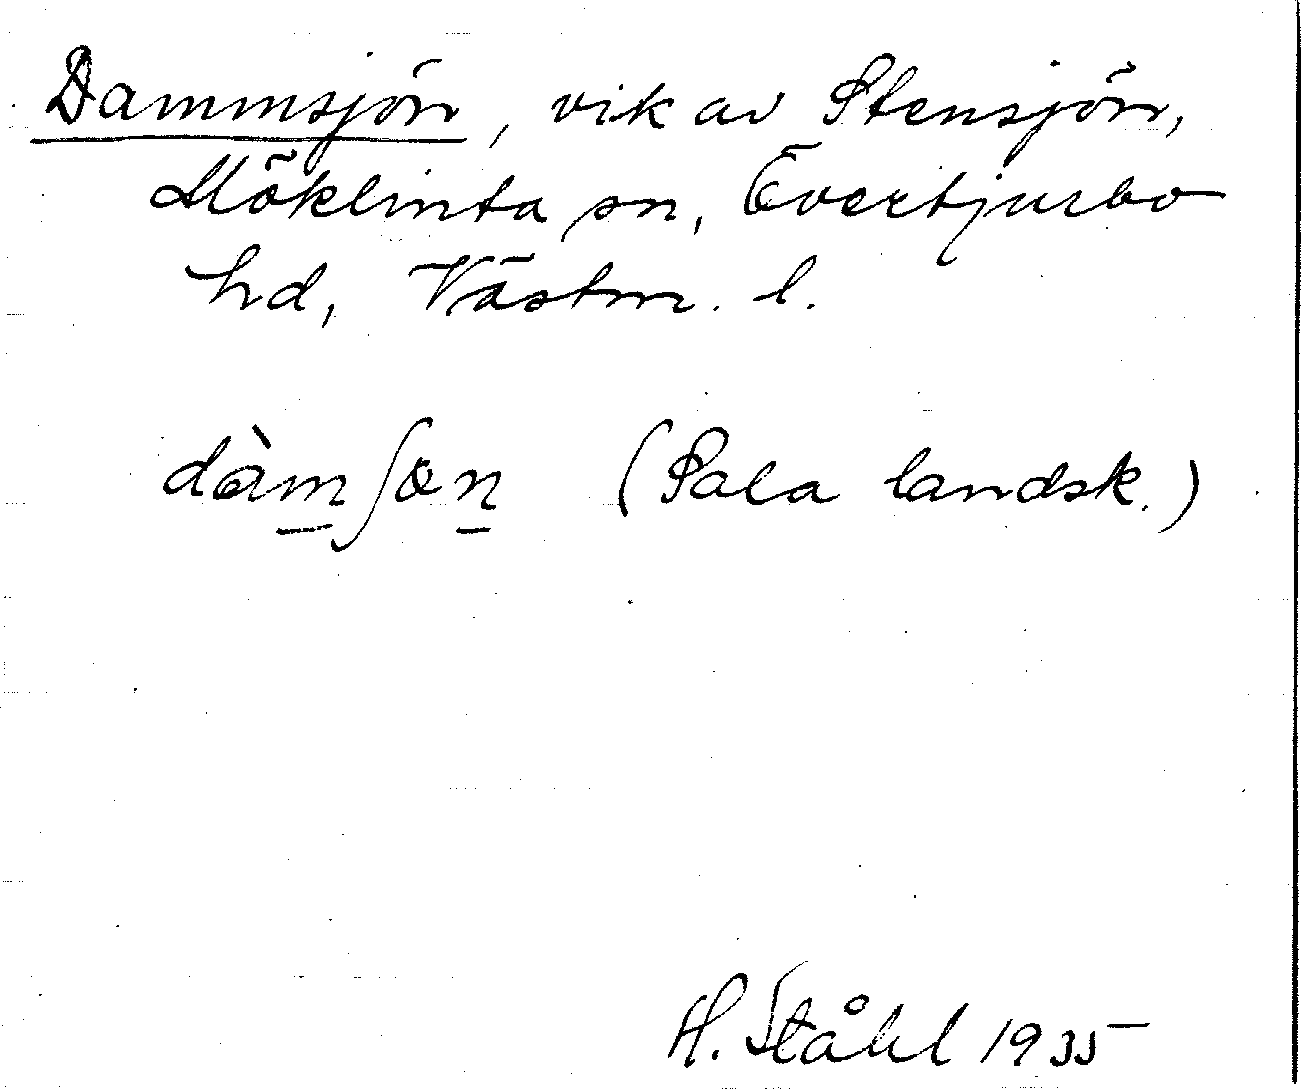 Dammsjön, vik av Stensjön,
Möklinta sn, Övertjurbo
hd, Västm. l.
dàm̲ʃøn̲ (Sala landsk.)
H. Ståhl 1935